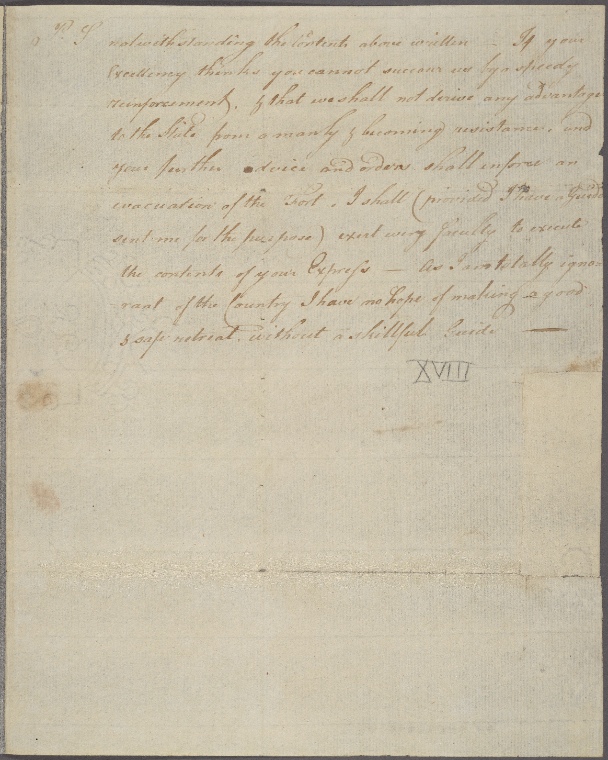 P. S notwithstanding the Contents above written - If your
Excellency thinks you cannot succour us by a speedy
reinforcement, & that we shall not derive any advantage
to the State from a manly & becoming resistance, and
your further advice and orders shall inforce an
evacuation of the Fort, I shall (provided I have a Guide
sent me for the purpose) exert every faculty to execute
the contents of your Express — As I am totally igno-
-rant of the Country I have no hope of making a good
& safe retreat, without a skillful Guide —
XVIII